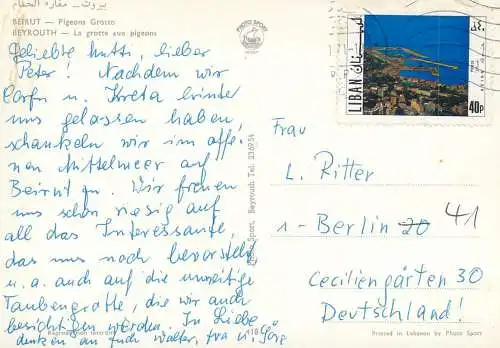 بيروت - مغارة الحمام
BEIRUT — Pigeons Grotto
BEYROUTH — La grotte aux pigeons
PHOTO SPORT
Geliebte Mutti, lieber
Peter! Nachdem wir
Corfu u. Kreta hinter
uns gelassen haben,
schaukeln wir im offe-
nen Mittelmeer auf
Beirut zu. Wir freuen
uns schon riesig auf
all das Interessante,
das uns noch bevorsteht
u. a. auch auf die
Taubengrotte, die wir auch
besichtigen werden. In Liebe
denken an Euch Walter,
LIBAN
40P
Frau
L. Ritter
1 - Berlin 20 41
Ceciliengärten 30
Deutschland!
Photo Sport, Beyrouth Tel. 236954
Printed in Lebanon by Photo Sport